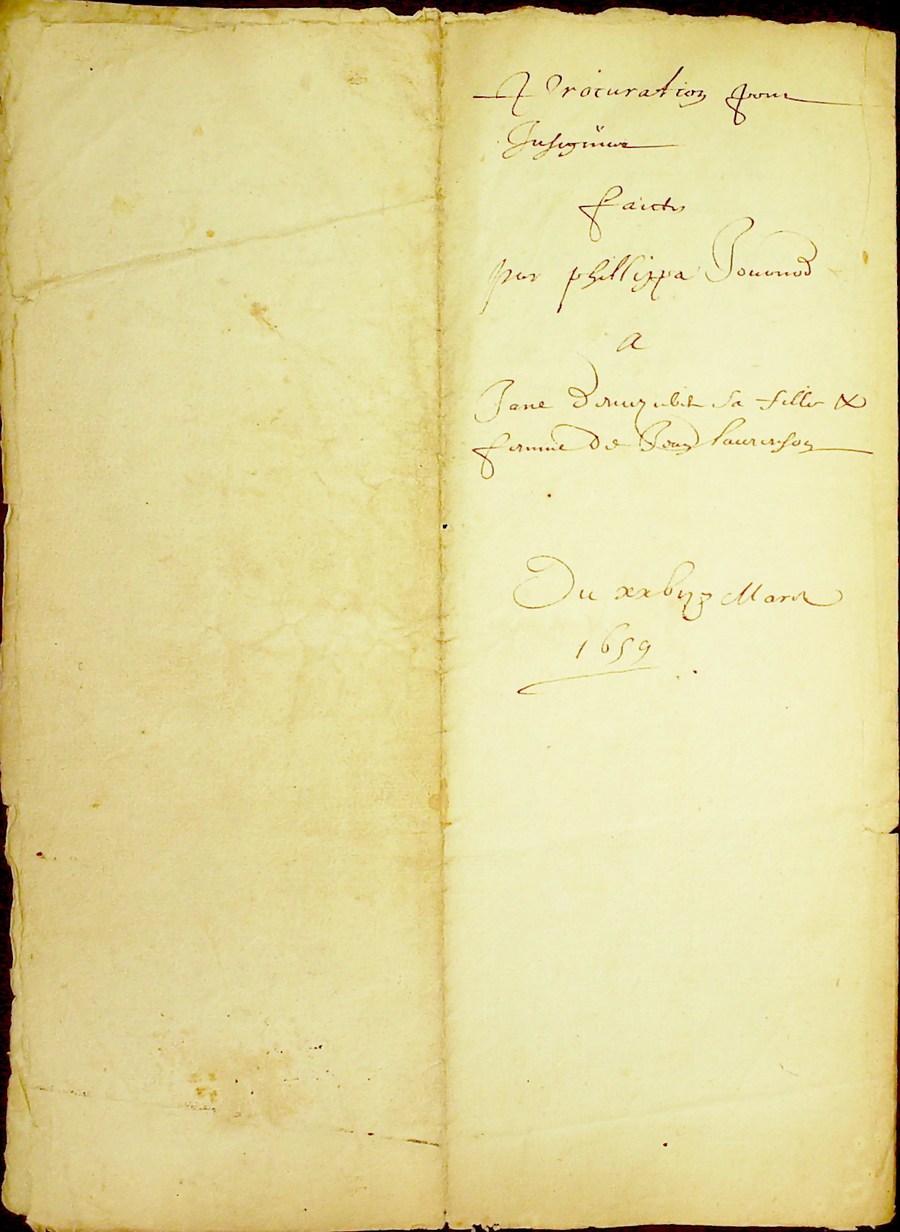 Procuration pour
Insignuer
faicte
par phillippa Jouvnod
A
Jane sa fille &
femme de Jean Laurenson
Du xxbiij Mars
1659